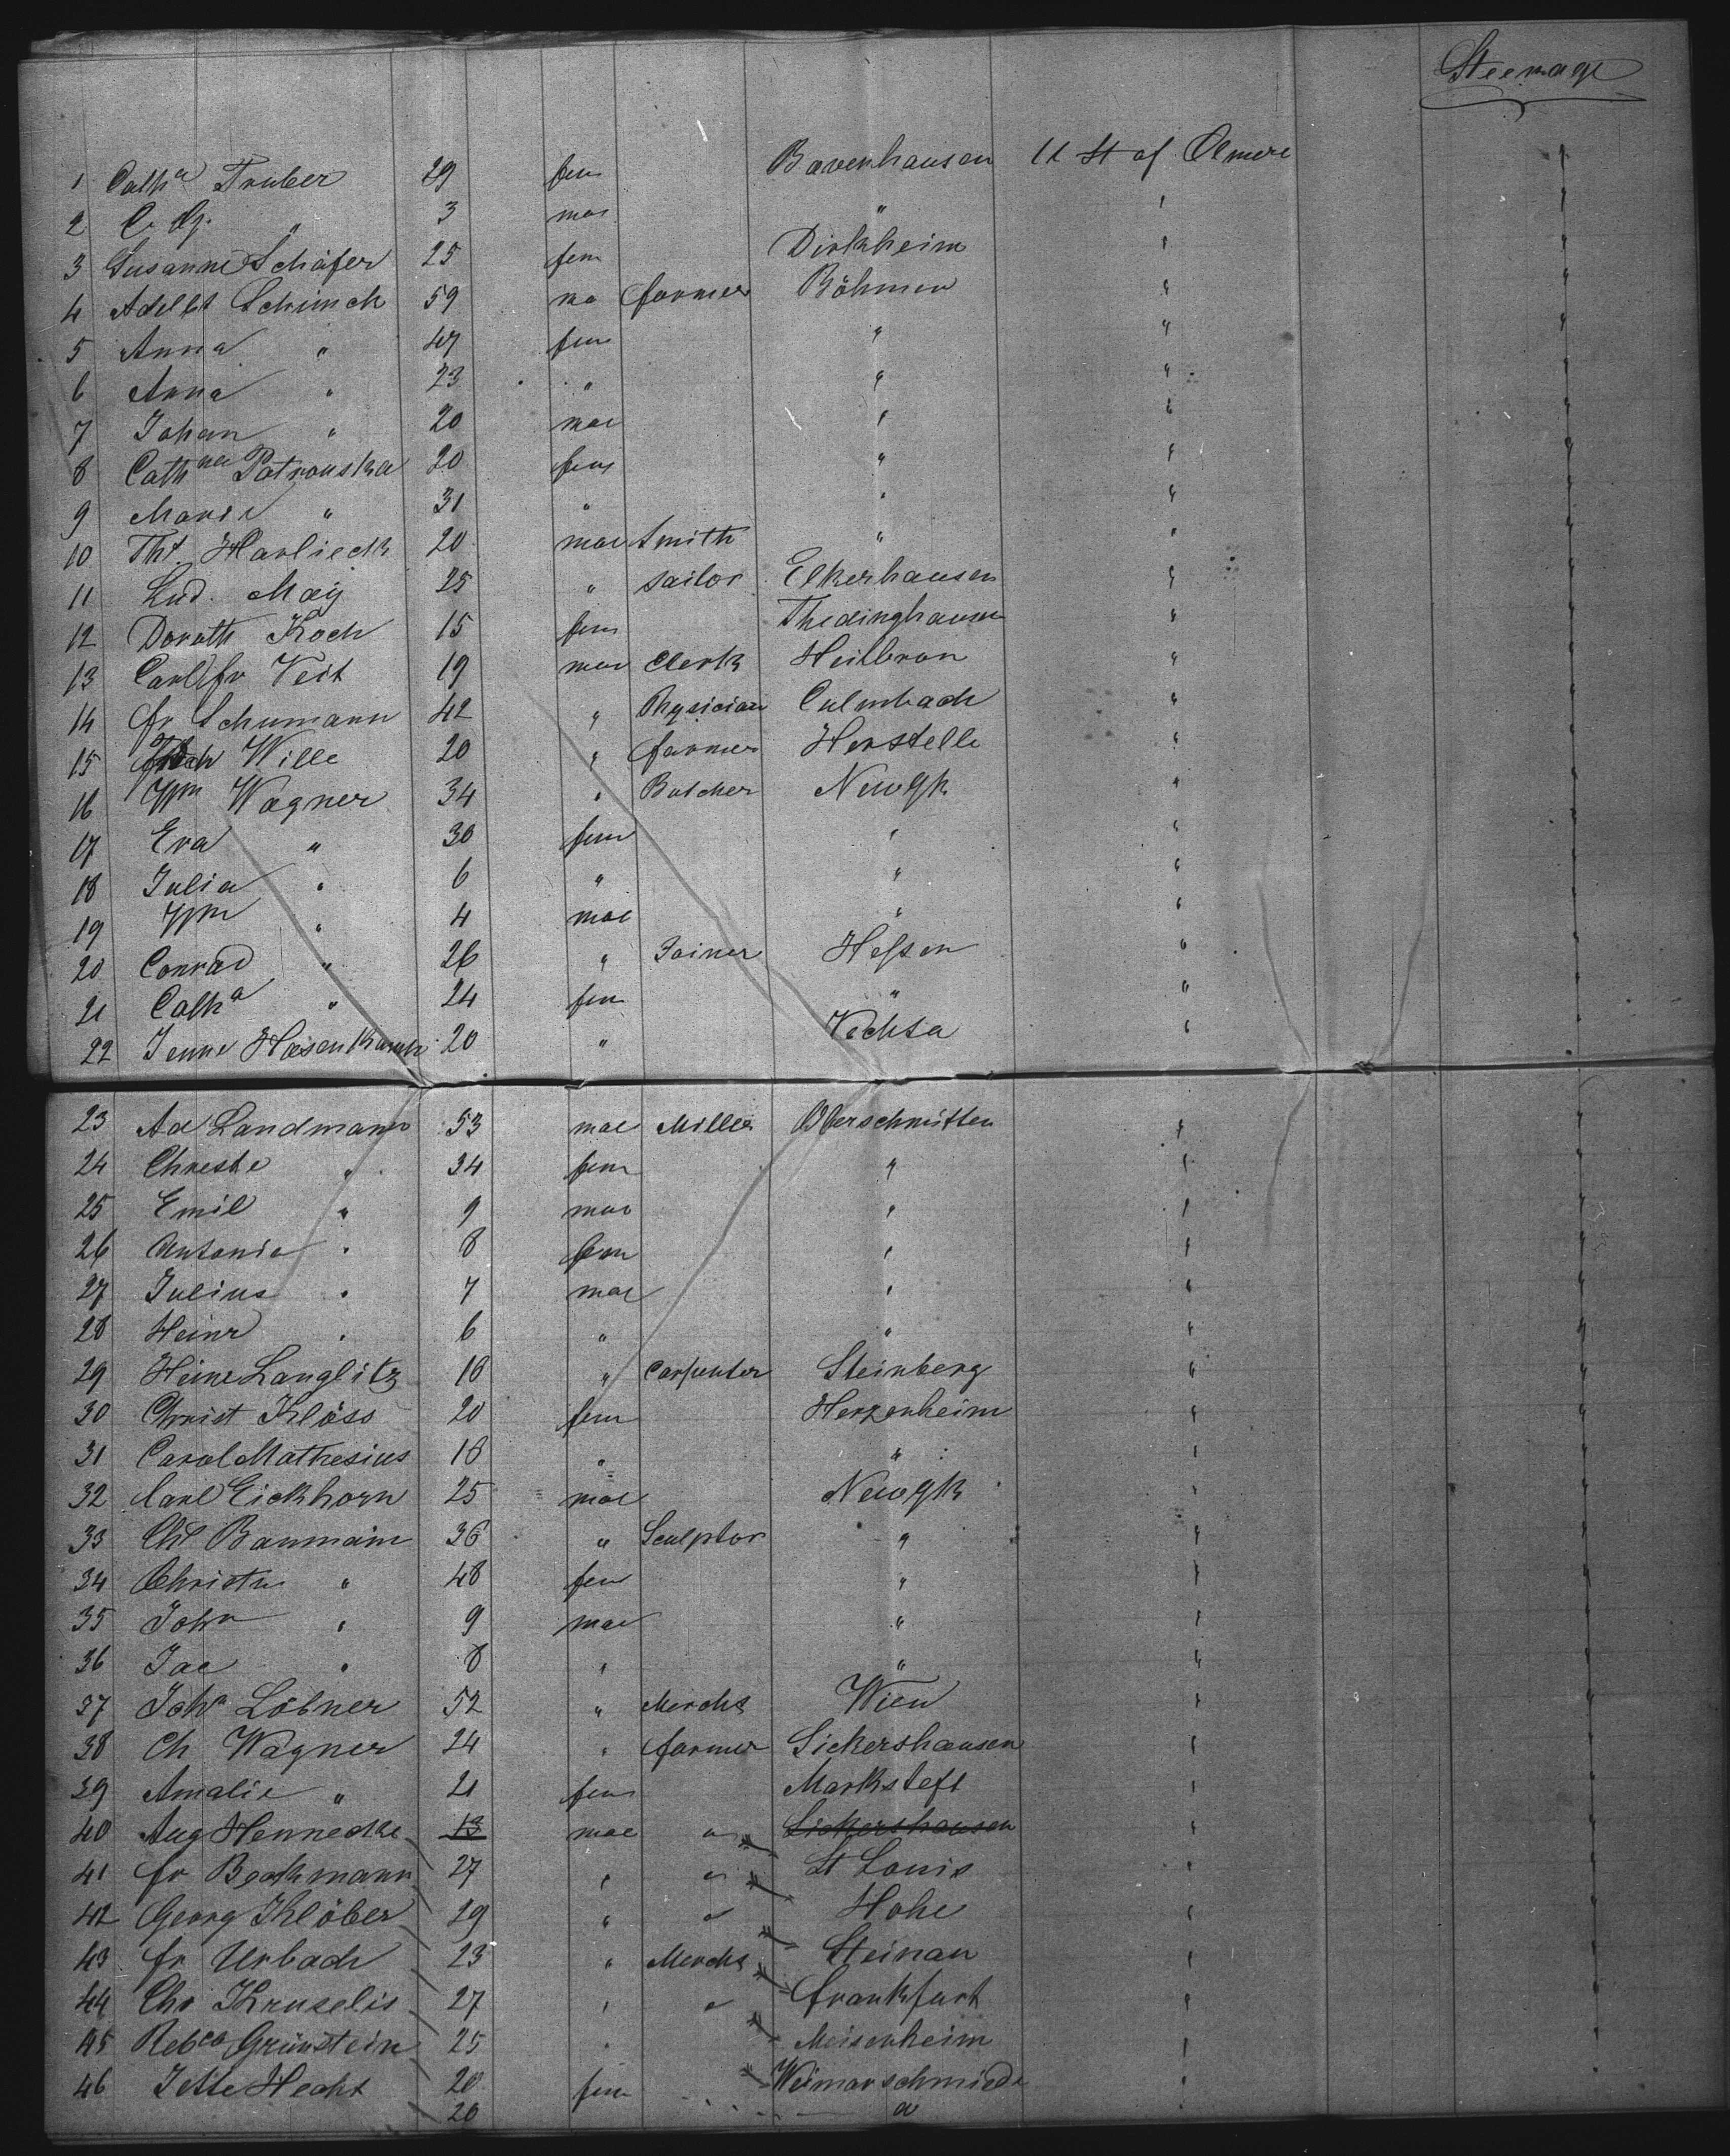 Steerage
1 Cath^a Truber 29 fem Bavenhausen U St of Amere "
2 C. Cg. " 3 mae " " "
3 Susanne Schäfer 25 fem Dirkheim " "
4 Adelbt Schimek 59 ma farmer Böhmen " "
5 Anna " 47 fem " " "
6 Anna " 23 " " " "
7 Johan " 20 mae " " "
8 Cath^na Patrouska 20 fem " " "
9 Marie " 31 " " " "
10 Tht. Harlieck 20 mae Smith " " "
11 Lud. May 25 " sailor Elkerhausen " "
12 Doroth Koch 15 fem Thedinghausen " "
13 Carl fr Veit 19 mae Clerk Heilbron " "
14 fr Schumann 42 " Physician Culmbach " "
15 Wille 20 " farmer Herstelle " "
16 Wm Wagner 34 " Butcher NewYk " "
17 Eva " 30 fem " " "
18 Julia " 6 " " " "
19 Wm " 4 mae " " "
20 Conrad " 26 " Joiner Hessen " "
21 Cath^a " 24 fem " " "
22 Jenne Hasenkamp 20 " Vechta "
23 Ad Landmann 53 mae Miller Oberschmitten " "
24 Christe " 34 fem " " "
25 Emil " 9 mae " " "
26 Antonie " 8 fem " " "
27 Julius " 7 mae " " "
28 Heinr " 6 " " " "
29 Heinr Langlitz 18 " Carpenter Steinberg " "
30 Christ Klöss 20 fem Herzenheim " "
31 Carol Mathesius 18 " " " "
32 Carl Eickhorn 25 mae NewYk " "
33 Cht Baumann 36 " Sculptor " " "
34 Christn " 48 fem " " "
35 John " 9 mae " " "
36 Jac " 8 " " " "
37 Joh^n Löbner 52 " Mercht Wien " "
38 Ch Wagner 24 " farmer Sickershausen " "
39 Amalie " 21 fem Marksteft " "
40 Aug Hennecke 13 mae " Sickershausen " "
41 fr Beckmann 27 " " St Louis " "
42 Georg Klöber 29 " " Hohe " "
43 fr Urbach 23 " Mercht Steinau " "
44 Chr Kruselis 27 " " Frankfurt " "
45 Reb^ca Grünstein 25 " Meisenheim " "
46 Jette Hecht 20 fem Weimarschmiede " "
20 "